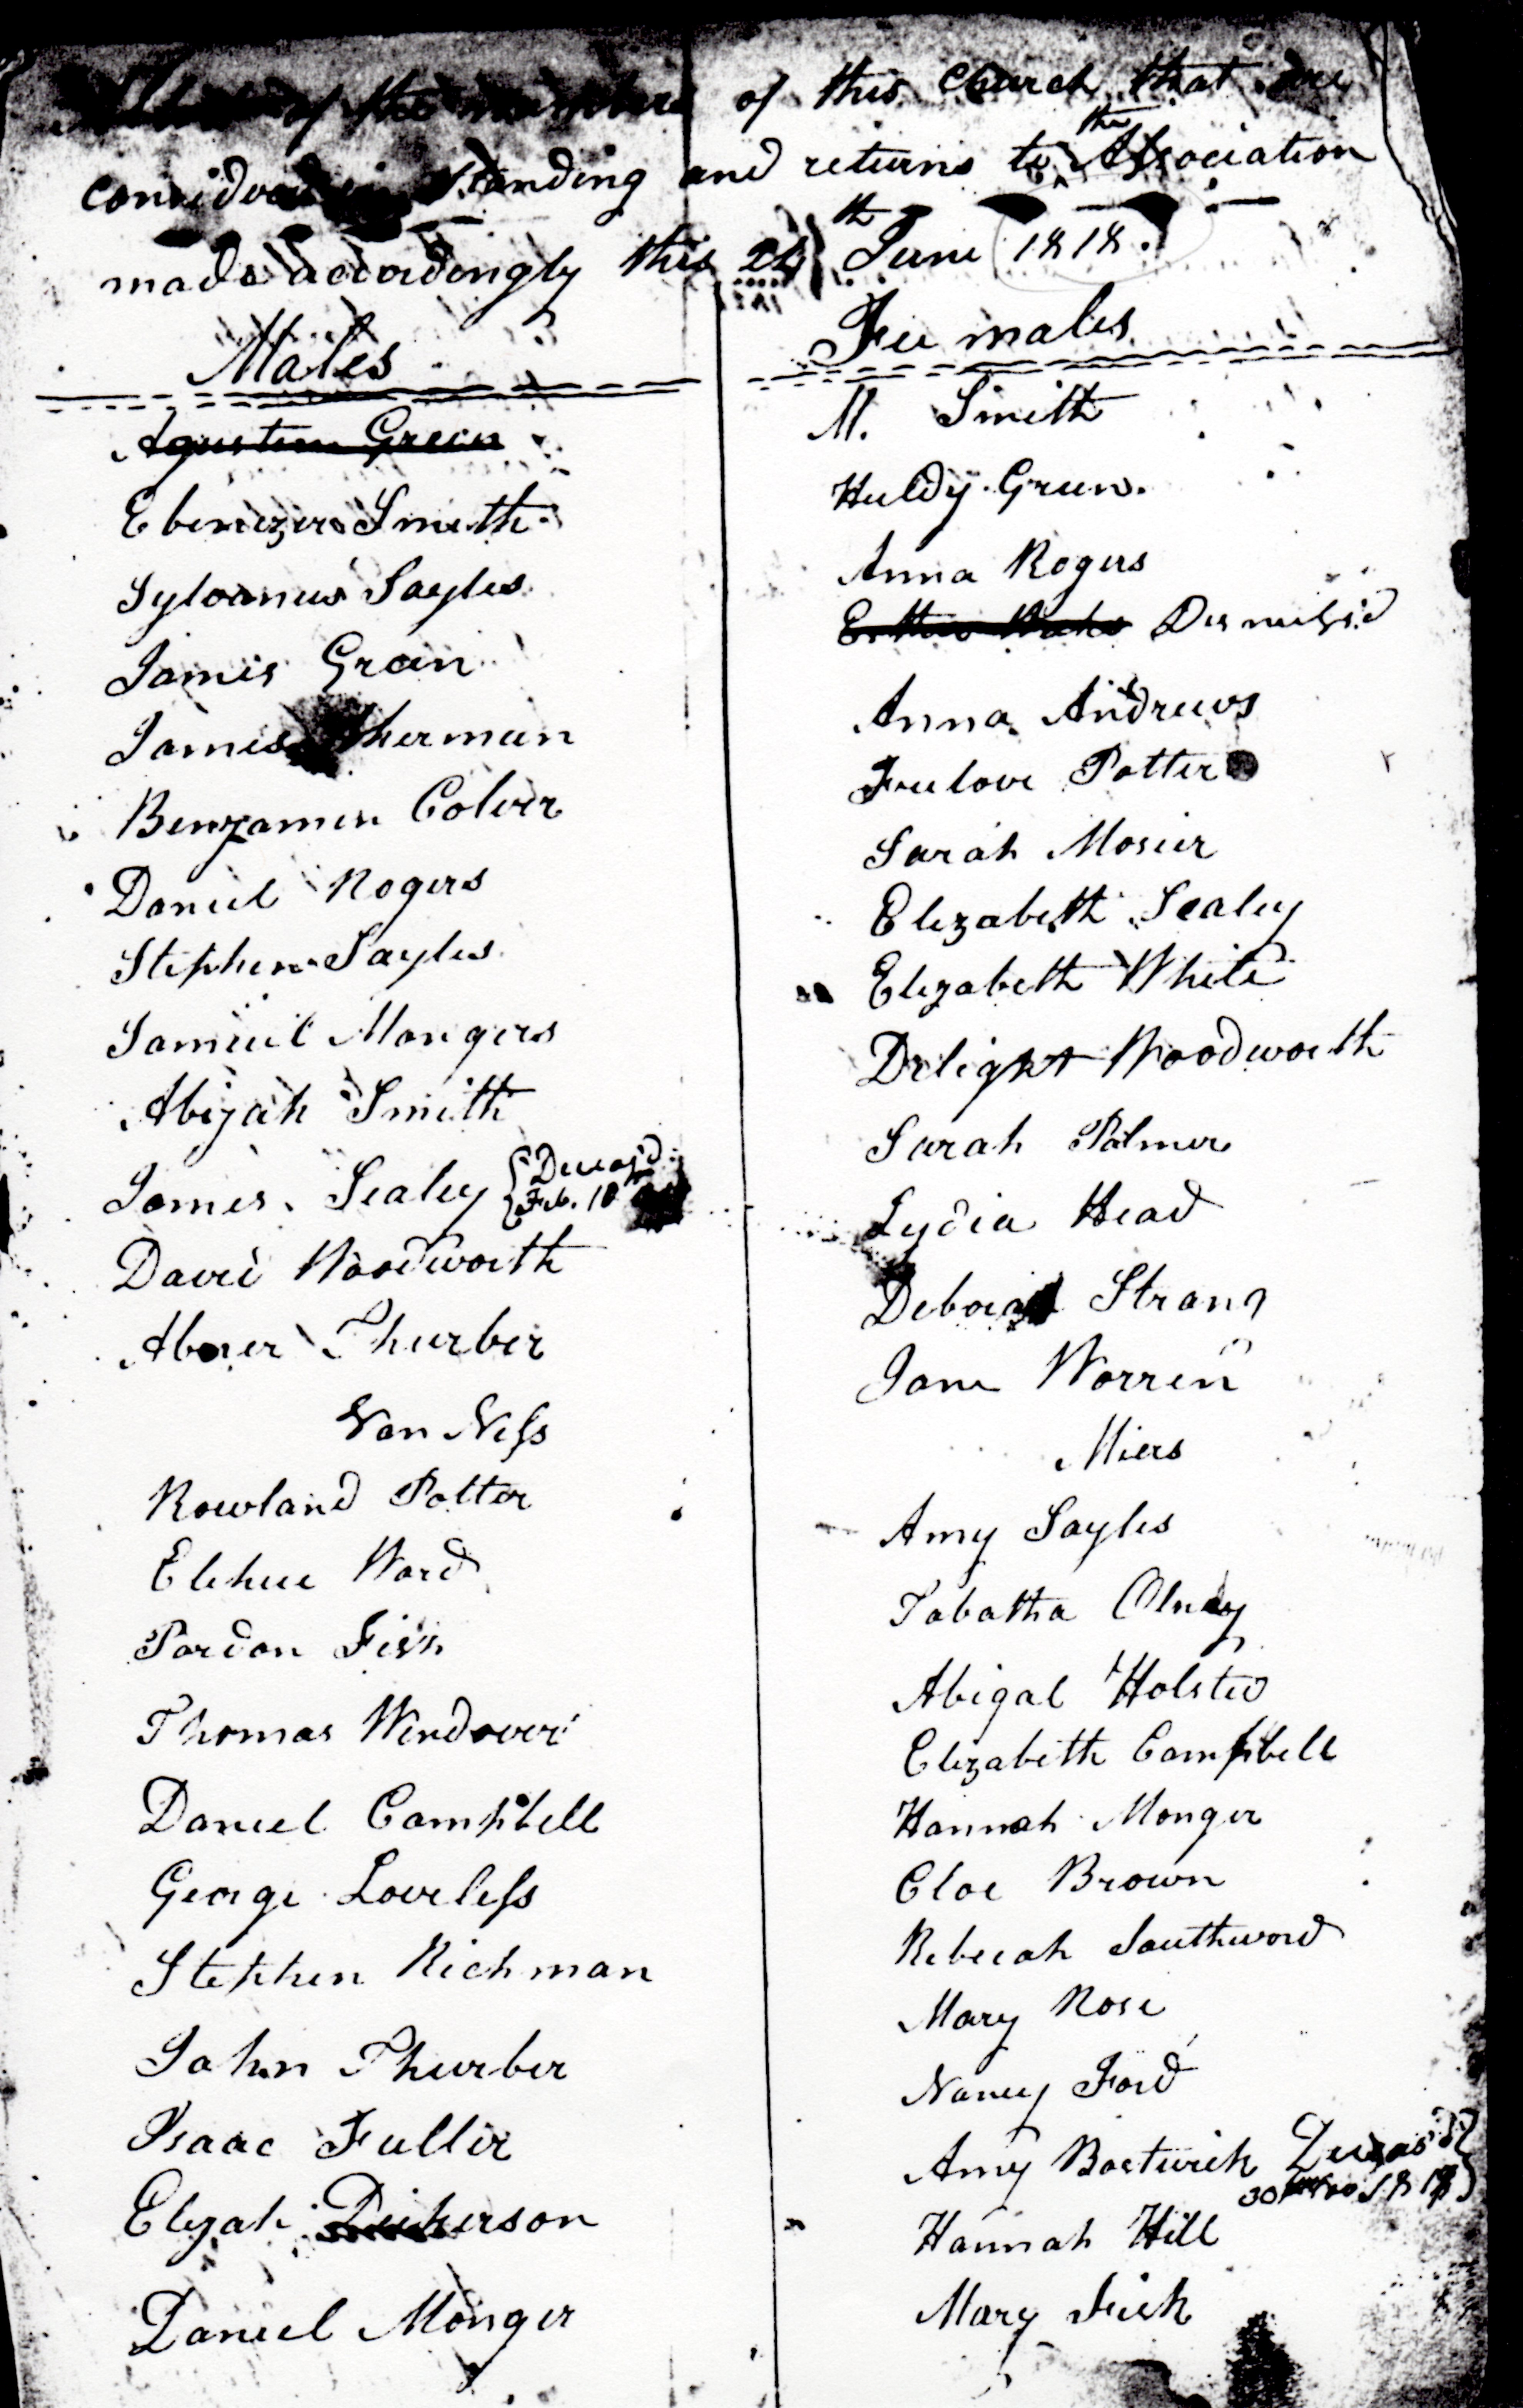 of the members of this Church that are
considered in Standing and returns to the Association
made accordingly this 24th June 1818.
Males
Agustin Green
Ebenezer Smith
Sylvanus Sayles
James Green
James Sherman
Benjamin Colver
Daniel Rogers
Stephen Sayles
Samuel Mongers
Abijah Smith
James Sealey {Deceas'd
Feb. 18
David Woodworth
Abner Thurber
Van Ness
Rowland Potter
Elehue Ward
Pardon Fish
Thomas Windover
Daniel Campbell
George Loveless
Stephen Richman
John Thurber
Isaac Fuller
Elijah Dickerson
Daniel Monger
Fee males
M. Smith
Huldy Green.
Anna Rogers
Dismissd
Anna Andrews
Freelove Potter
Sarah Mosier
Elizabeth Sealey
Elizabeth White
Delight Woodworth
Sarah Palmer
Lydia Head
Deborah Strang
Jane Warren
Miers
Amy Sayles
Tabatha Olney
Abigal Holsted
Elizabeth Campbell
Hannah Monger
Cloe Brown
Rebecah Southword
Mary Rose
Nancy Ford
Amy Bostwick Deceas'd
30 1818
Hannah Hill
Mary Fish